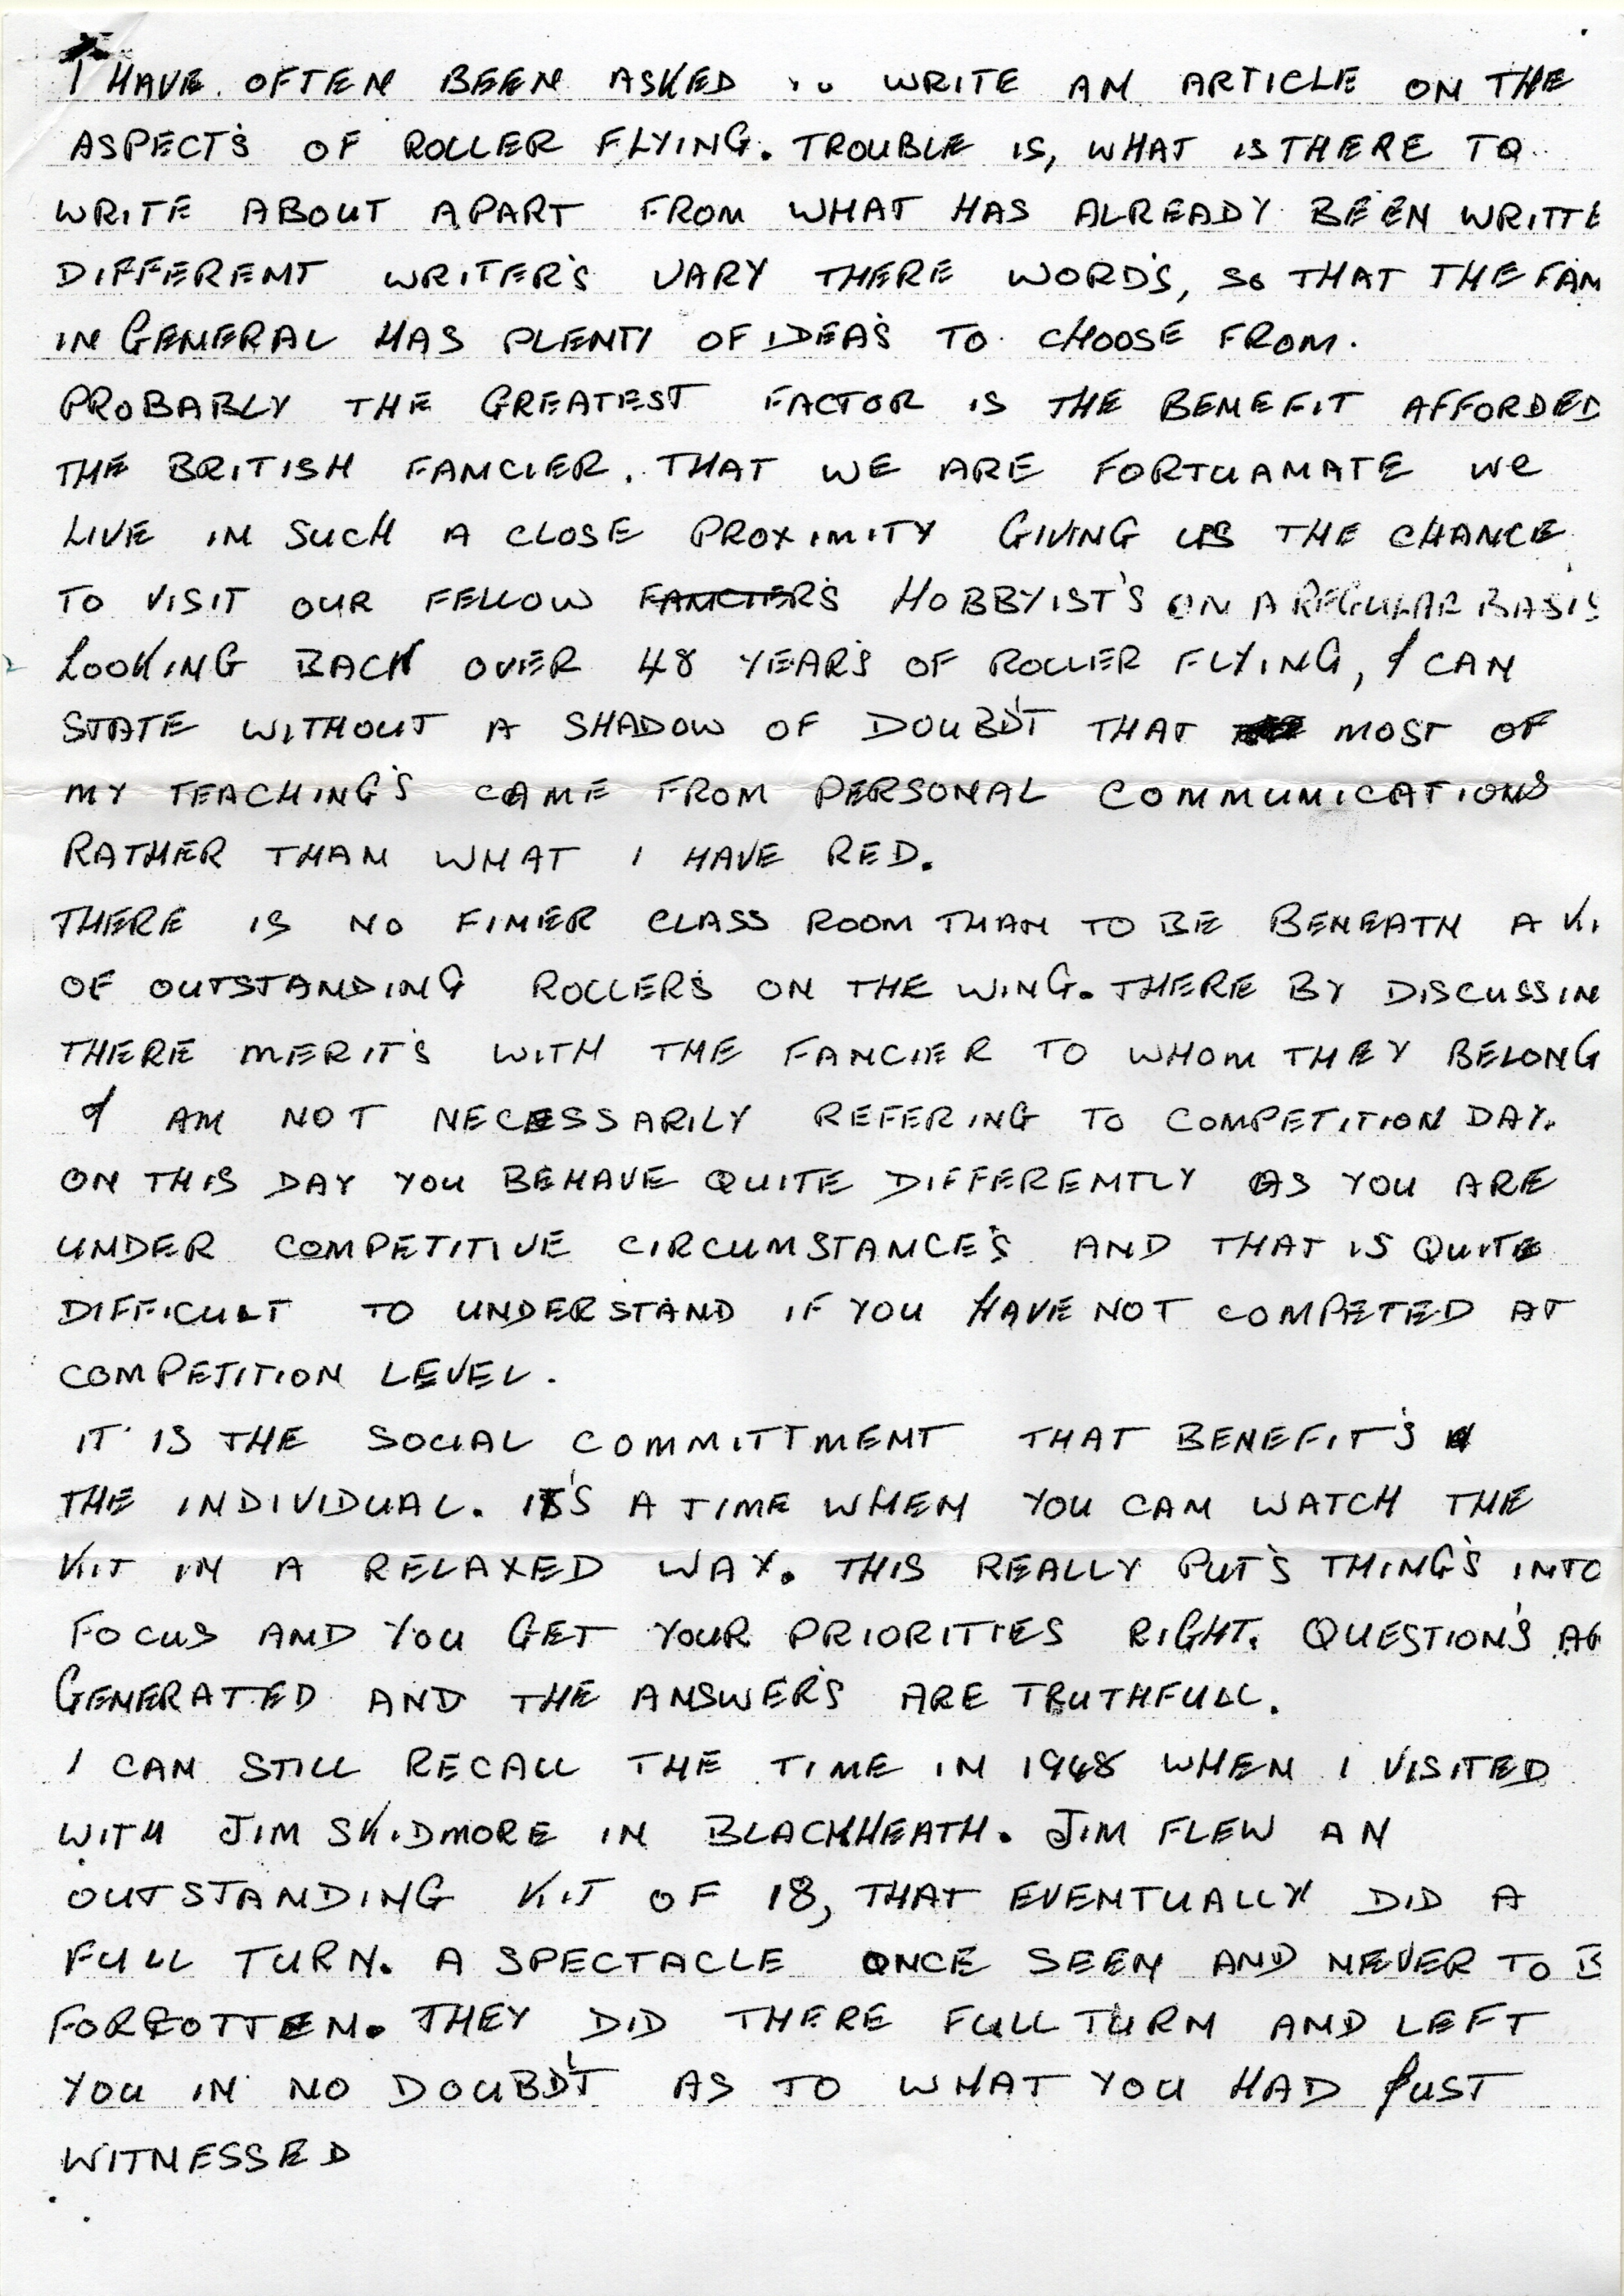 I HAVE OFTEN BEEN ASKED TO WRITE AN ARTICLE ON THE
ASPECT'S OF ROLLER FLYING. TROUBLE IS, WHAT IS THERE TO
WRITE ABOUT APART FROM WHAT HAS ALREADY BEEN WRITTE
DIFFERENT WRITER'S VARY THERE WORD'S, SO THAT THE FAN
IN GENERAL HAS PLENTY OF IDEA'S TO CHOOSE FROM.
PROBABLY THE GREATEST FACTOR IS THE BENEFIT AFFORDED
THE BRITISH FANCIER. THAT WE ARE FORTUANATE WE
LIVE IN SUCH A CLOSE PROXIMITY GIVING US THE CHANCE
TO VISIT OUR FELLOW FANCIER'S HOBBYIST'S ON A REGULAR BASIS
LOOKING BACK OVER 48 YEAR'S OF ROLLER FLYING, I CAN
STATE WITHOUT A SHADOW OF DOUBD'T THAT MOST OF
MY TEACHING'S CAME FROM PERSONAL COMMUNICATIONS
RATHER THAN WHAT I HAVE RED.
THERE IS NO FINER CLASS ROOM THAN TO BE BENEATH A KI
OF OUTSTANDING ROLLER'S ON THE WING. THERE BY DISCUSSIN
THERE MERIT'S WITH THE FANCIER TO WHOM THEY BELONG
I AM NOT NECESSARILY REFERING TO COMPETITION DAY.
ON THIS DAY YOU BEHAVE QUITE DIFFERENTLY AS YOU ARE
UNDER COMPETITIVE CIRCUMSTANCE'S AND THAT IS QUITE
DIFFICULT TO UNDERSTAND IF YOU HAVE NOT COMPETED AT
COMPETITION LEVEL.
IT IS THE SOCIAL COMMITTMENT THAT BENEFIT'S
THE INDIVIDUAL. IT'S A TIME WHEN YOU CAN WATCH THE
KIT IN A RELAXED WAY. THIS REALLY PUT'S THING'S INTO
FOCUS AND YOU GET YOUR PRIORITIES RIGHT. QUESTION'S
GENERATED AND THE ANSWER'S ARE TRUTHFULL.
I CAN STILL RECALL THE TIME IN 1948 WHEN I VISITED
WITH JIM SKIDMORE IN BLACKHEATH. JIM FLEW AN
OUTSTANDING KIT OF 18, THAT EVENTUALLY DID A
FULL TURN. A SPECTACLE ONCE SEEN AND NEVER TO B
FORGOTTEN. THEY DID THERE FULL TURN AND LEFT
YOU IN NO DOUBD'T AS TO WHAT YOU HAD JUST
WITNESSED